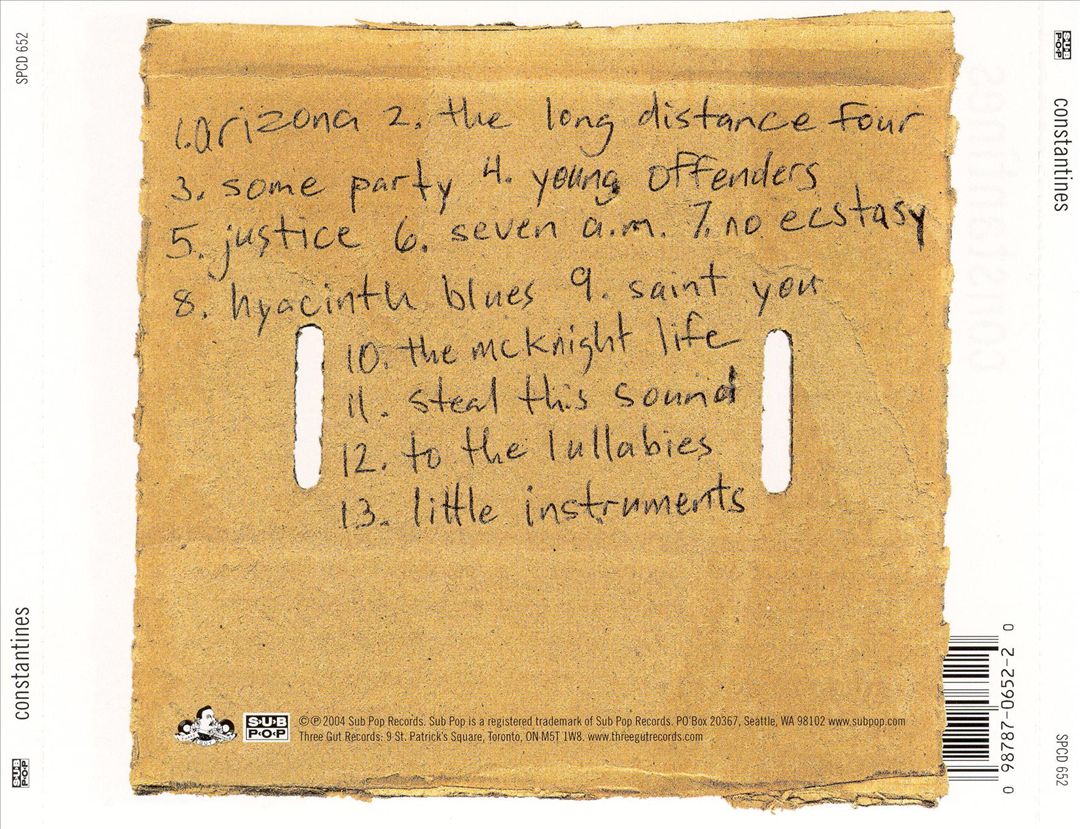 1. arizona 2. the long distance four
3. some party 4. young offenders
5. justice 6. seven a.m. 7. no ecstasy
8. hyacinth blues 9. saint you
10. the mcknight life
11. steal this sound
12. to the lullabies
13. little instruments
SUB POP
©℗ 2004 Sub Pop Records. Sub Pop is a registered trademark of Sub Pop Records. PO Box 20367, Seattle, WA 98102 www.subpop.com
Three Gut Records: 9 St. Patrick's Square, Toronto, ON M5T 1W8. www.threegutrecords.com
SPCD 652
constantines
SUB POP
SUB POP
constantines
SPCD 652
0 98787-0652-2 0